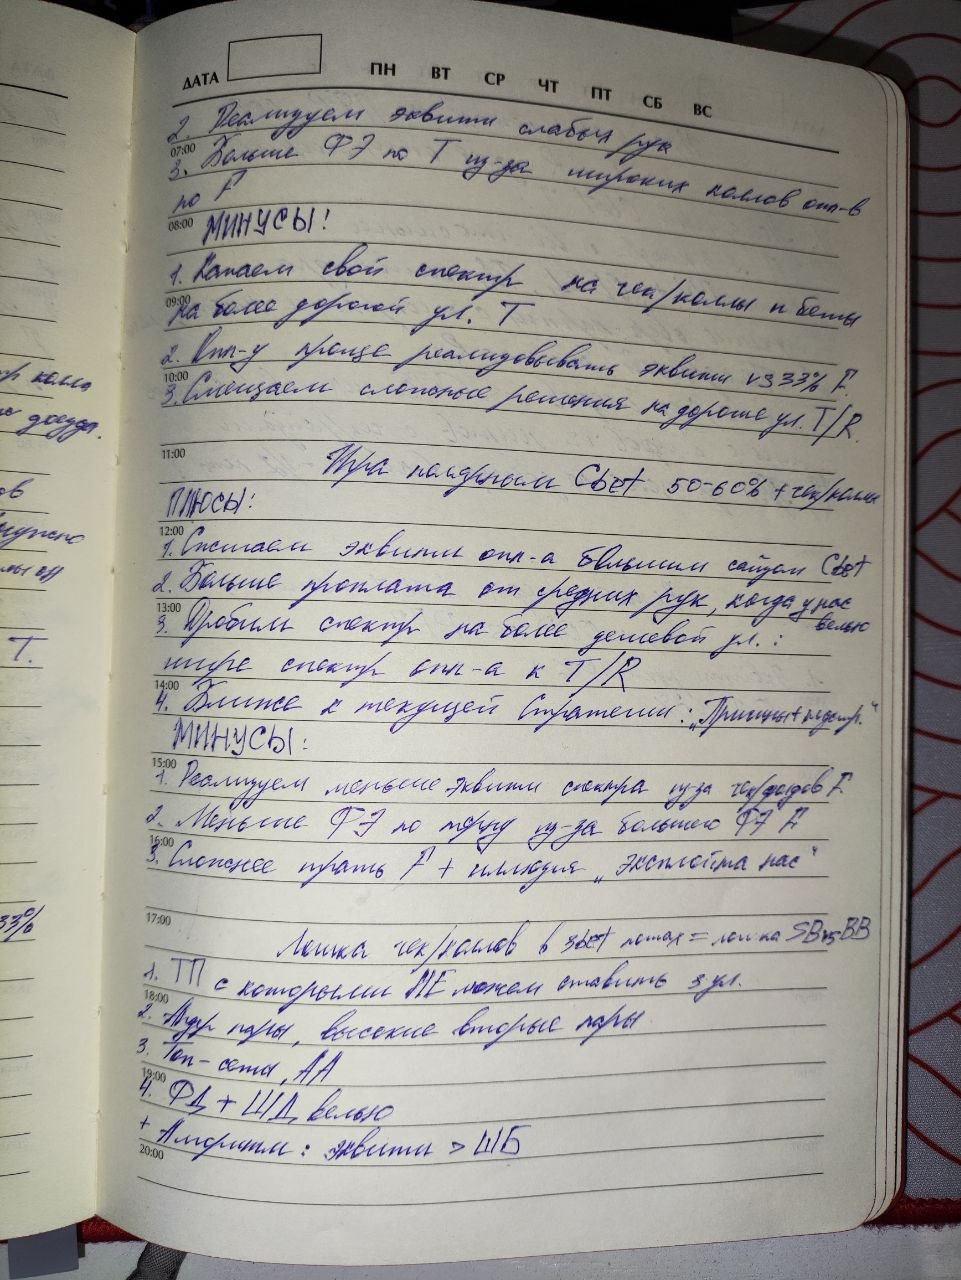 ДАТА ПН ВТ СР ЧТ ПТ СБ ВС
2. Реализуем эквити слабых рук
07:00
3. Больше ФЭ по Т из-за широких коллов опп-в
по F
08:00
МИНУСЫ!
1. Капаем свой спектр на чек/коллы и беты
09:00
на более дорогой ул. Т
2. Опп-у проще реализовывать эквити vs 33% F.
10:00
3. Смещаем сложные решения на дорогие ул. T/R.
11:00
Игра полярным Cbet 50-60% + чек/коллы
ПЛЮСЫ:
12:00
1. Сжигаем эквити опп-а большим сайзом Cbet
2. Больше проплата от средних рук, когда у нас
велью
13:00
3. Дробим спектр на более дешевой ул.:
шире спектр опп-а к T/R
14:00
4. Ближе к текущей стратегии:
МИНУСЫ:
15:00
1. Реализуем меньше эквити спектра из-за чек/фолдов F
2. Меньше ФЭ по терну из-за большего ФЭ F
16:00
3. Сложнее играть F + иллюзия „эксплойта нас“
17:00
Логика чек/коллов в 3bet потах = логика SB vs BB
1. ТП с которыми НЕ можем ставить 3 ул.
18:00
2. Андер пары, высокие вторые пары
3. Топ-сеты, АА
19:00
4. ФД + ШД, велью
+ Алгоритм: эквити > ШБ
20:00
р колла
доезда.
ов
нужно
Т.
33%